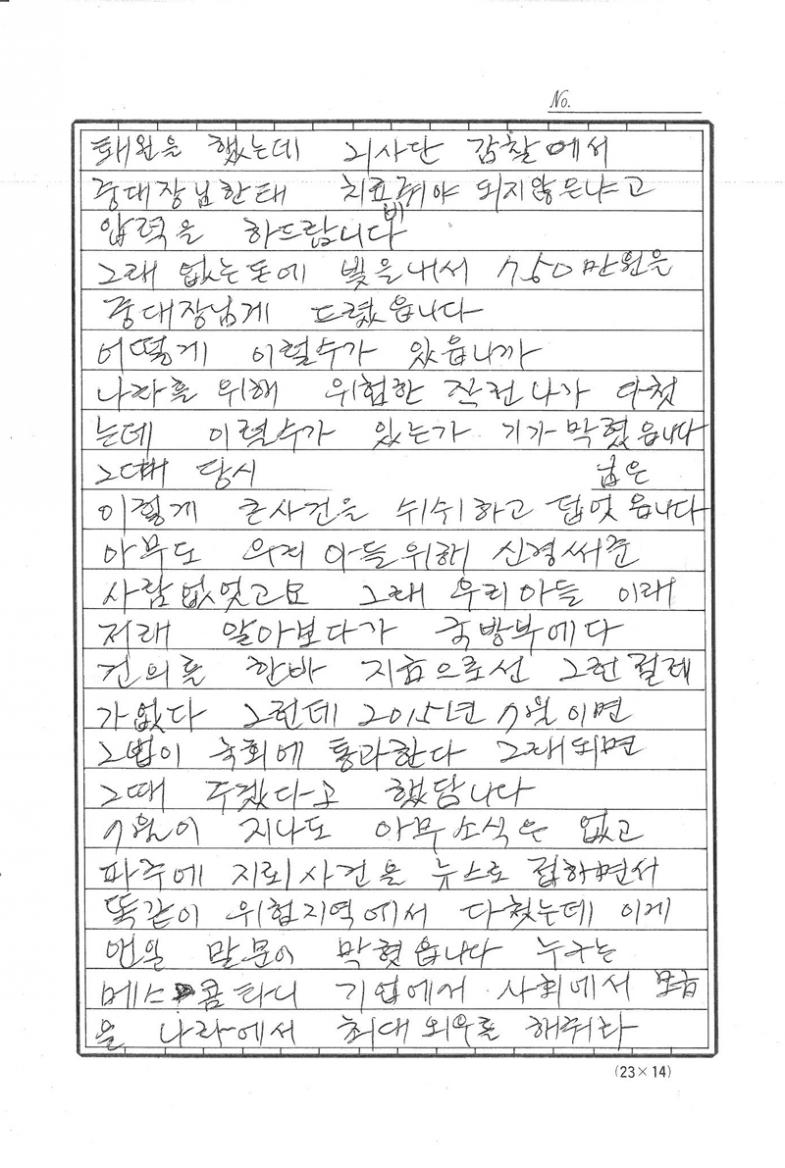 No.
퇴원을 했는데 외사단 감찰에서
중대장님한태 치료비 줘야 되지않은냐고
압력을 하드랍니다
그래 없는돈에 빛을내서 750만원을
중대장님게 드렸읍니다
어떻게 이럴수가 있읍니까
나라를 위해 위험한 작전나가 다첫
는데 이럴수가 있는가 기가막혔읍니다
그때 당시 님은
이렇게 큰사건을 쉬쉬하고 덥엇읍니다
아무도 우리 아들위해 신경써준
사람없엇고요 그래 우리아들 이래
저래 알아보다가 국방부에다
건의를 한바 지금으로선 그런 절레
가없다 그런데 2015년 7월이면
그법이 국회에 통과한다 그래되면
그때 주겠다고 했답니다
7월이 지나도 아무소식은 없고
파주에 지뢰사건을 뉴스로 접하면서
똑같이 위험지역에서 다첬는데 이게
앤일 말문이 막혔읍니다 누구는
메스콤타니 기업에서 사회에서 모금
을 나라에서 최대외우를 해줘라
(23×14)